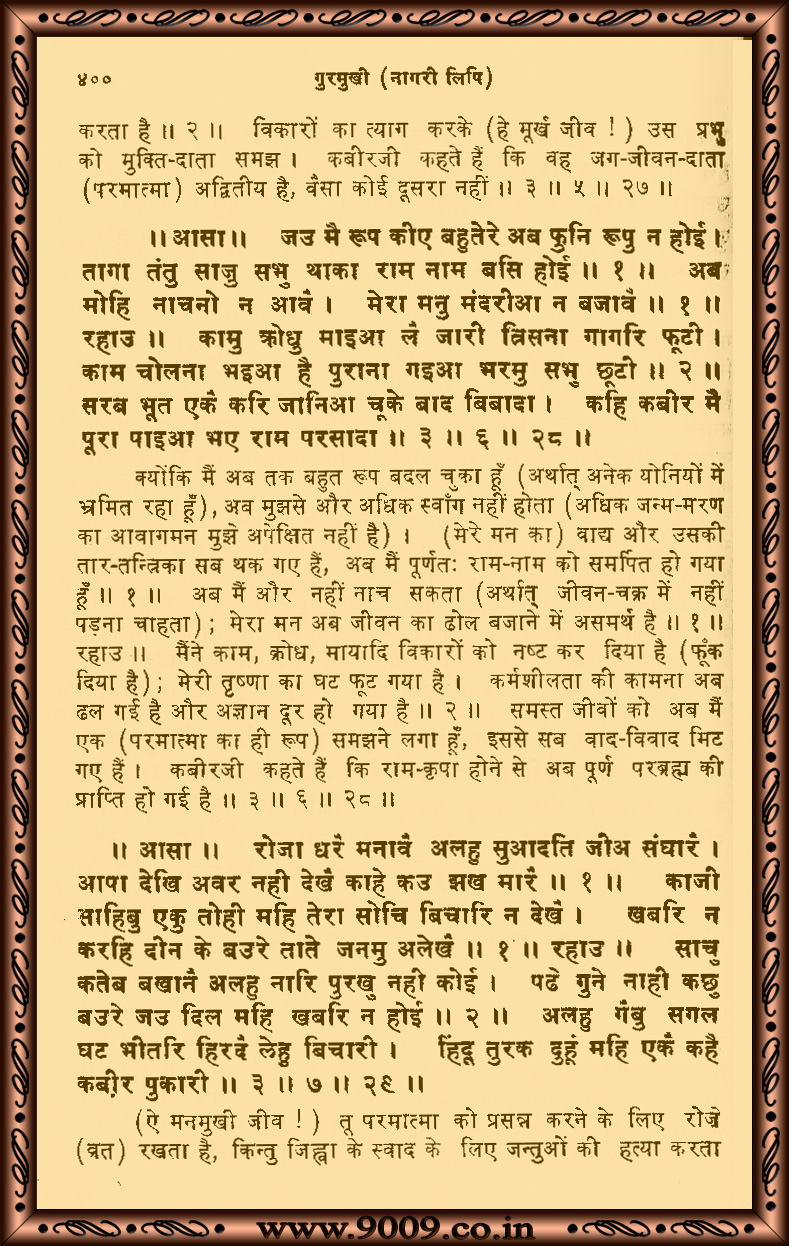 ४०० गुरमुखी (नागरी लिपि)
करता है ॥ २ ॥ विकारों का त्याग करके (हे मूर्ख जीव ! ) उस प्रभु
को मुक्ति-दाता समझ । कबीरजी कहते हैं कि वह जग-जीवन-दाता
(परमात्मा) अद्वितीय है, वैसा कोई दूसरा नहीं ॥ ३ ॥ ५ ॥ २७ ॥
॥ आसा ॥ जउ मै रूप कीए बहुतेरे अब फुनि रूपु न होई ।
तागा तंतु साजु सभु थाका राम नाम बसि होई ॥ १ ॥ अब
मोहि नाचनो न आवै । मेरा मनु मंदरीआ न बजावै ॥ १ ॥
रहाउ ॥ कामु क्रोधु माइआ लै जारी त्रिसना गागरि फूटी ।
काम चोलना भइआ है पुराना गइआ भरमु सभु छूटी ॥ २ ॥
सरब भूत एकै करि जानिआ चूके बाद बिबादा । कहि कबीर मै
पूरा पाइआ भए राम परसादा ॥ ३ ॥ ६ ॥ २८ ॥
क्योंकि मैं अब तक बहुत रूप बदल चुका हूँ (अर्थात् अनेक योनियों में
भ्रमित रहा हूँ), अब मुझसे और अधिक स्वाँग नहीं होता (अधिक जन्म-मरण
का आवागमन मुझे अपेक्षित नहीं है) । (मेरे मन का) वाद्य और उसकी
तार-तन्त्रिका सब थक गए हैं, अब मैं पूर्णतः राम-नाम को समर्पित हो गया
हूँ ॥ १ ॥ अब मैं और नहीं नाच सकता (अर्थात् जीवन-चक्र में नहीं
पड़ना चाहता) ; मेरा मन अब जीवन का ढोल बजाने में असमर्थ है ॥ १ ॥
रहाउ ॥ मैंने काम, क्रोध, मायादि विकारों को नष्ट कर दिया है (फूँक
दिया है) ; मेरी तृष्णा का घट फूट गया है । कर्मशीलता की कामना अब
ढल गई है और अज्ञान दूर हो गया है ॥ २ ॥ समस्त जीवों को अब मैं
एक (परमात्मा का ही रूप) समझने लगा हूँ, इससे सब वाद-विवाद मिट
गए हैं । कबीरजी कहते हैं कि राम-कृपा होने से अब पूर्ण परब्रह्म की
प्राप्ति हो गई है ॥ ३ ॥ ६ ॥ २८ ॥
॥ आसा ॥ रोजा धरै मनावै अलहु सुआदति जीअ संघारै ।
आपा देखि अवर नही देखै काहे कउ झख मारै ॥ १ ॥ काजी
साहिबु एकु तोही महि तेरा सोचि बिचारि न देखै । खबरि न
करहि दीन के बउरे ताते जनमु अलेखै ॥ १ ॥ रहाउ ॥ साचु
कतेब बखानै अलहु नारि पुरखु नही कोई । पढे गुने नाही कछु
बउरे जउ दिल महि खबरि न होई ॥ २ ॥ अलहु गैबु सगल
घट भीतरि हिरदै लेहु बिचारी । हिंदू तुरक दुहूं महि एकै कहै
कबीर पुकारी ॥ ३ ॥ ७ ॥ २९ ॥
(ऐ मनमुखी जीव ! ) तू परमात्मा को प्रसन्न करने के लिए रोज़े
(व्रत) रखता है, किन्तु जिह्वा के स्वाद के लिए जन्तुओं की हत्या करता
www.9009.co.in